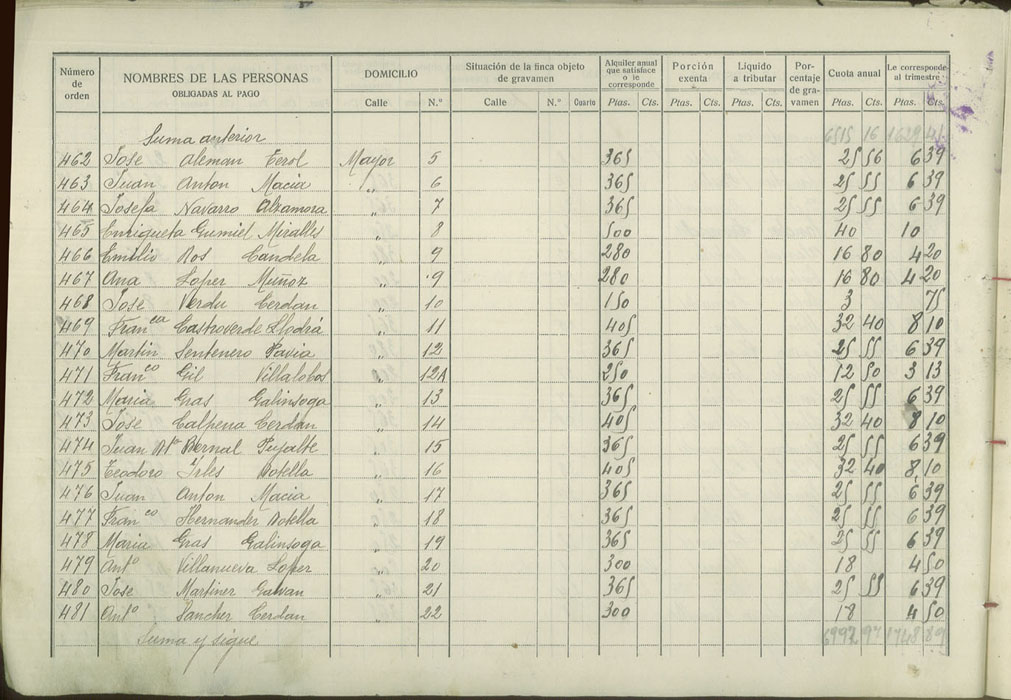 Número de orden | NOMBRES DE LAS PERSONAS OBLIGADAS AL PAGO | DOMICILIO | Situación de la finca objeto de gravamen | Alquiler anual que satisface o le corresponde | Porción exenta | Líquido a tributar | Porcentaje de gravamen | Cuota anual | Le corresponde al trimestre
Calle | N.º | Calle | N.º | Cuarto | Ptas. | Cts. | Ptas. | Cts. | Ptas. | Cts. | Ptas. | Cts. | Ptas. | Cts.
Suma anterior 6515 16 1629 41
462 Jose Aleman Terol Mayor 5 365 25 56 6 39
463 Juan Anton Macia " 6 365 25 55 6 39
464 Josefa Navarro Alzamora " 7 365 25 55 6 39
465 Enriqueta Gumiel Miralles " 8 500 40 10
466 Emilio Ros Candela " 9 280 16 80 4 20
467 Ana Loper Muñoz " 9 280 16 80 4 20
468 Jose Verdu Cerdan " 10 150 3 75
469 Fran.ca Castroverde Llodrá " 11 405 32 40 8 10
470 Martin Sentenero Pavia " 12 365 25 55 6 39
471 Fran.co Gil Villalobos " 12A 250 12 50 3 13
472 Maria Gras Galinsoga " 13 365 25 55 6 39
473 Jose Calpena Cerdan " 14 405 32 40 8 10
474 Juan Bt.ª Bernal Pujalte " 15 365 25 55 6 39
475 Teodoro Irles Botella " 16 405 32 40 8,10
476 Juan Anton Macia " 17 365 25 55 6 39
477 Fran.co Hernander Botella " 18 365 25 55 6 39
478 Maria Gras Galinsoga " 19 365 25 55 6 39
479 Ant.º Villanueva Loper " 20 300 18 4 50
480 Jose Martiner Galvan " 21 365 25 55 6 39
481 Ant.º Sancher Cerdan " 22 300 18 4 50
Suma y sigue 6992 97 1748 89